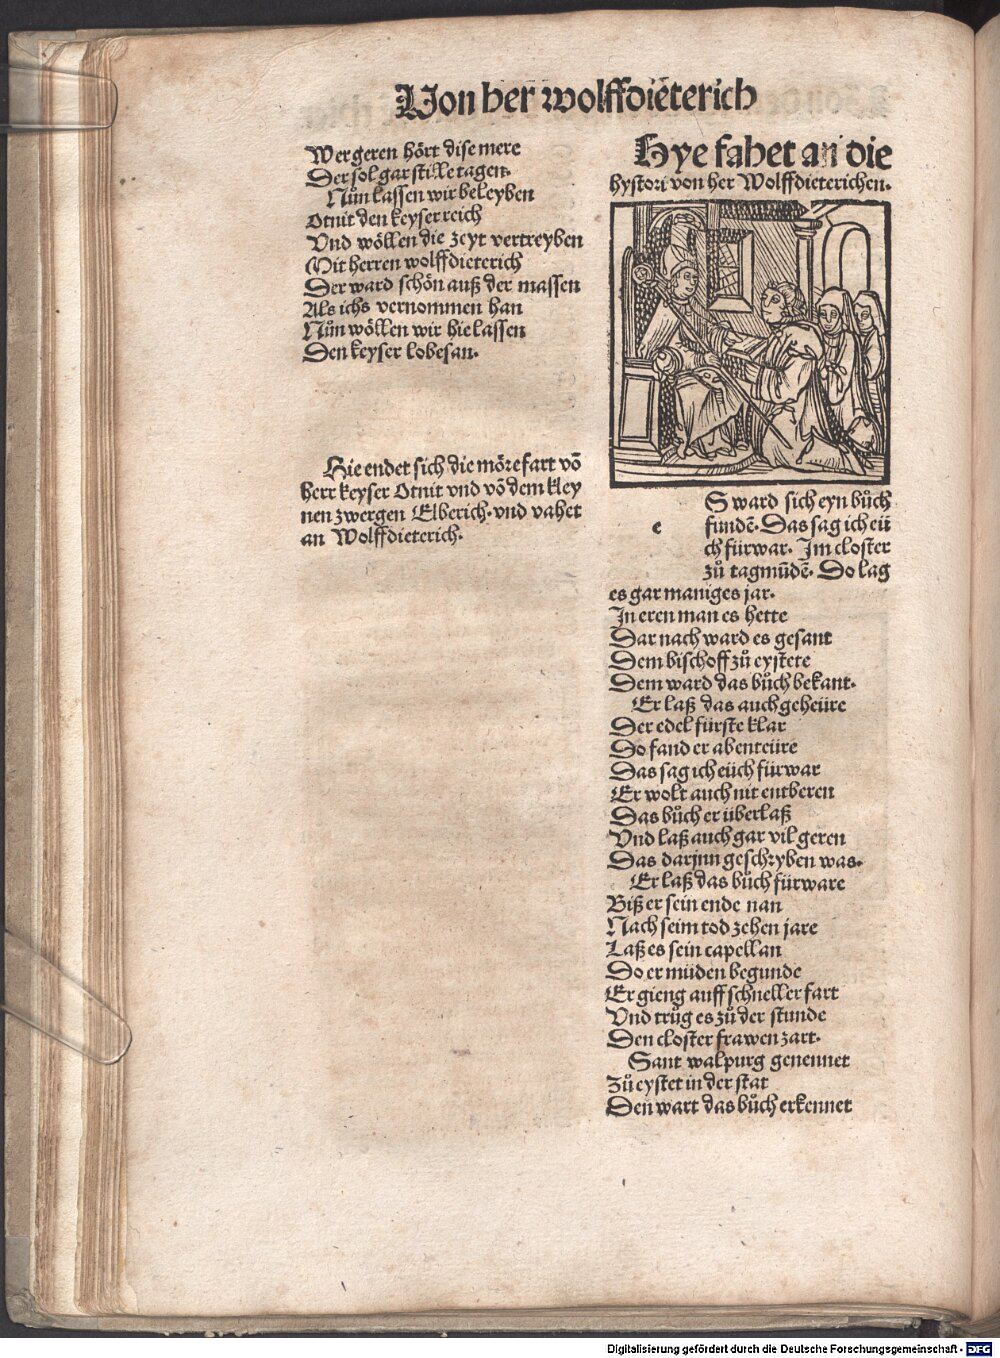 Von her wolffdieterich
Wer geren hört dise mere
Der sol gar stille tagen.
Nůn lassen wir beleyben
Otnit den keyser reich
Vnd wöllen die zeyt vertreyben
Mit herren wolffdieterich
Der ward schön auß der massen
Als ichs vernommen han
Nůn wöllen wir hie lassen
Den keyser lobesan.
Hie endet sich die mörefart vō
herr keyser Otnit vnd vō dem kley
nen zwergen Elberich. vnd vahet
an Wolffdieterich.
Hye fahet an die
hystori von her Wolffdieterichen.
e
S ward sich eyn bůch
fundē. Das sag ich eü
ch fürwar. Im closter
zů tagmūdē. Do lag
es gar maniges jar.
In eren man es hette
Dar nach ward es gesant
Dem bischoff zů eystete
Dem ward das bůch bekant.
Er laß das auch geheüre
Der edel fürste klar
Do fand er abenteüre
Das sag ich eüch fürwar
Er wolt auch nit entberen
Das bůch er überlaß
Vnd laß auch gar vil geren
Das darjnn geschryben was.
Er laß das bůch fürware
Biß er sein ende nan
Nach seim tod zehen jare
Laß es sein capellan
Do er müden begunde
Er gieng auff schneller fart
Vnd trůg es zů der stunde
Den closter frawen zart.
Sant walpurg genennet
Zů eystet in der stat
Den wart das bůch erkennet
Digitalisierung gefördert durch die Deutsche Forschungsgemeinschaft - DFG